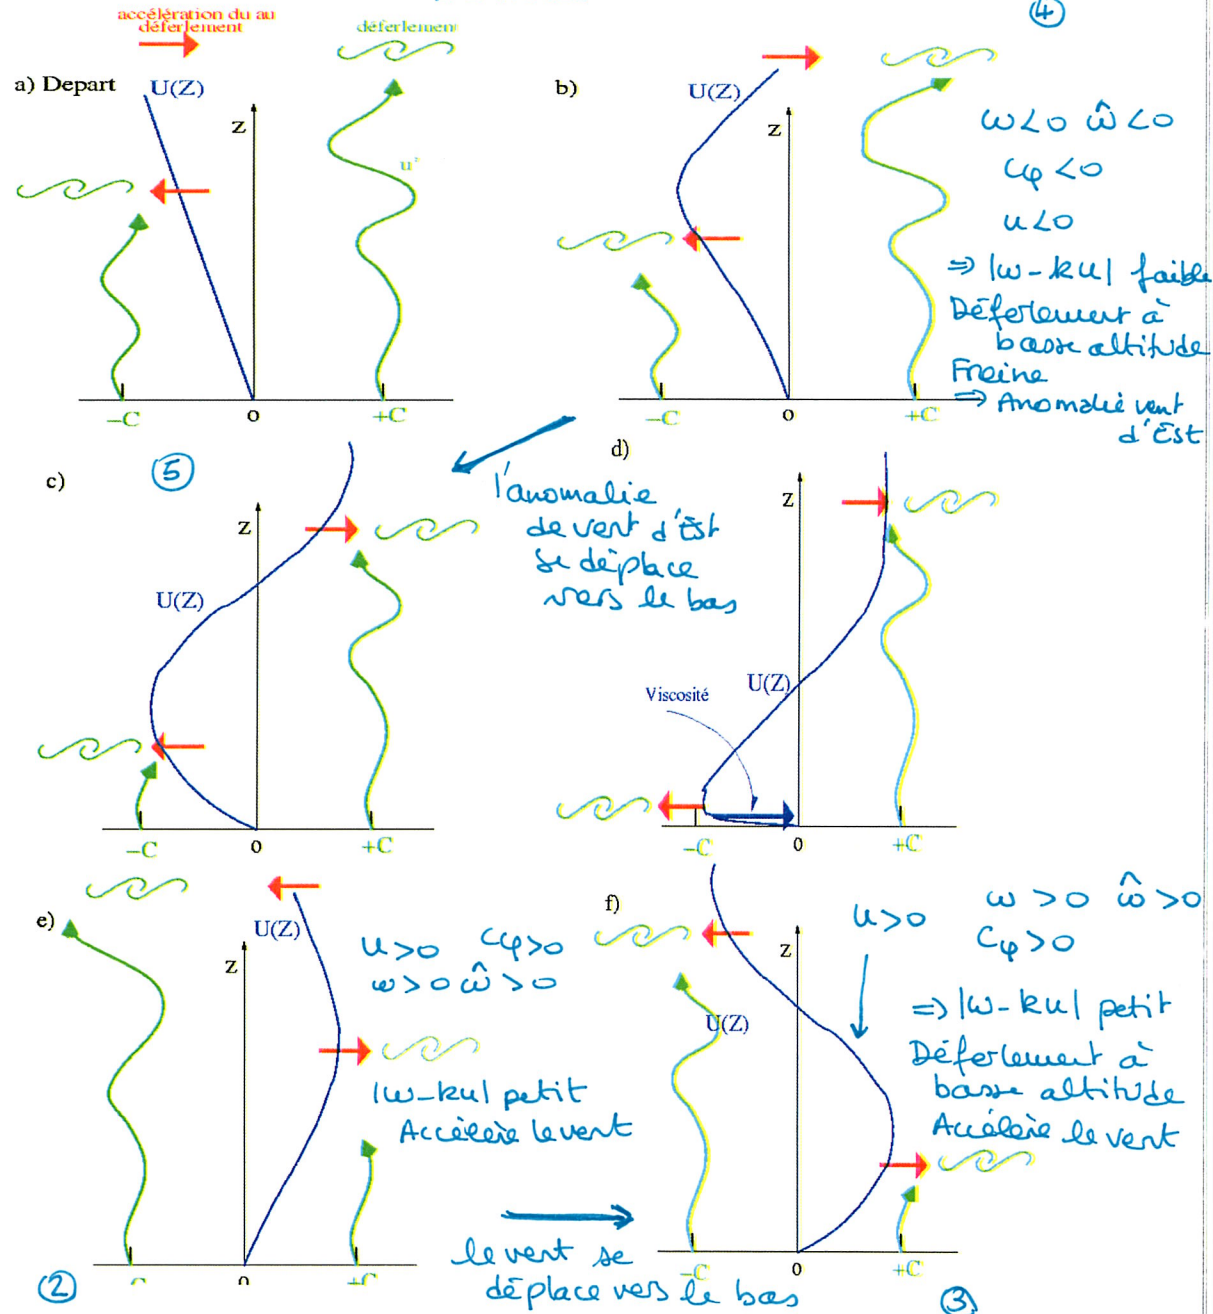 accélération du au
déferlement
déferlement
④
a) Depart
U(Z)
z
u'
-C
0
+C
b)
U(Z)
z
-C
0
+C
ω<0 ω̂<0
cφ<0
u<0
⇒ |ω-ku| faible
Déferlement à
basse altitude
Freine
⇒ Anomalie vent
d'Est
c)
⑤
z
U(Z)
-C
0
+C
l'anomalie
de vent d'Est
se déplace
vers le bas
d)
z
U(Z)
Viscosité
-C
0
+C
e)
U(Z)
z
u>0 cφ>0
ω>0 ω̂>0
|ω-ku| petit
Accélère le vent
0
②
le vent se
déplace vers le bas
f)
z
U(Z)
u>0
ω>0 ω̂>0
cφ>0
⇒ |ω-ku| petit
Déferlement à
basse altitude
Accélère le vent
-C
0
+C
③